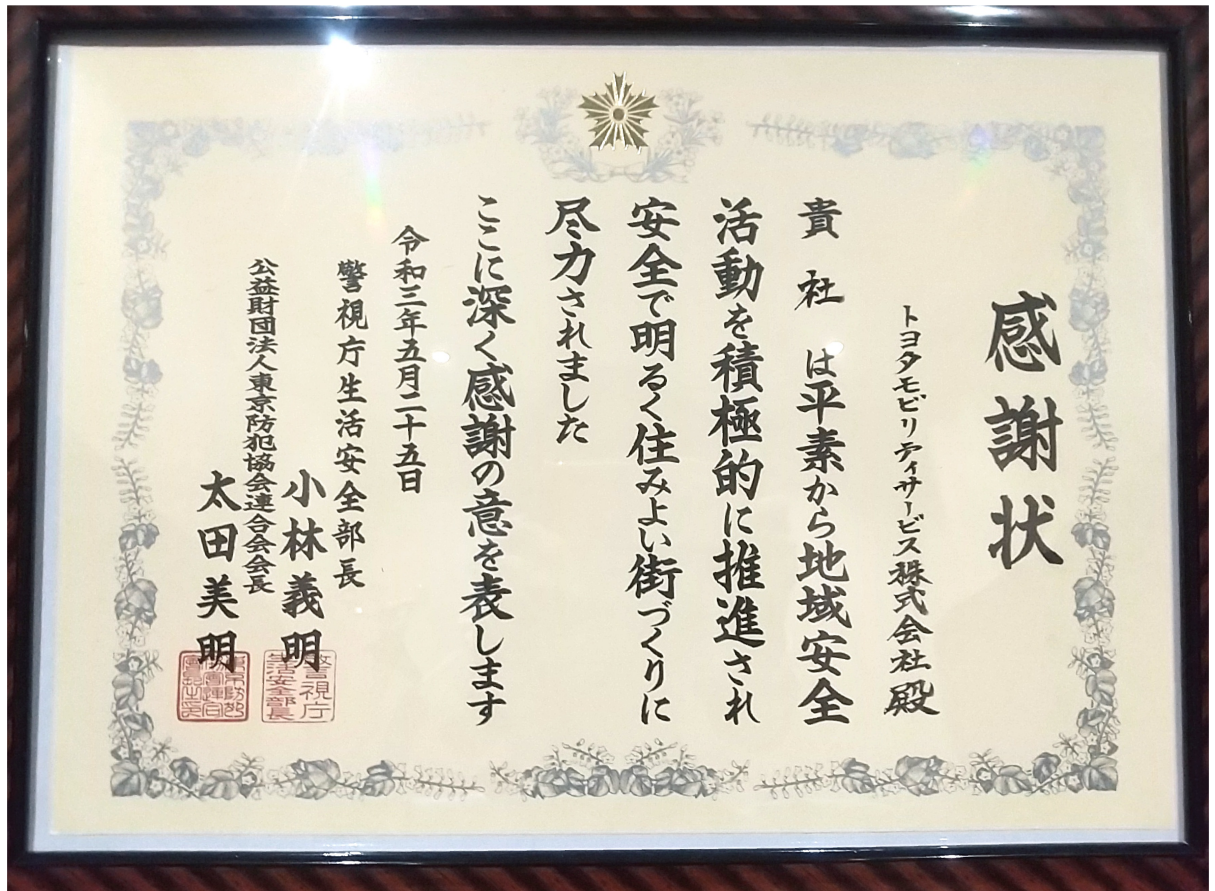 感謝状
トヨタモビリティサービス株式会社殿
貴社は平素から地域安全
活動を積極的に推進され
安全で明るく住みよい街づくりに
尽力されました
ここに深く感謝の意を表します
令和三年五月二十五日
警視庁生活安全部長
小林義明
警視庁
生活安全部長
公益財団法人東京防犯協会連合会会長
太田美明